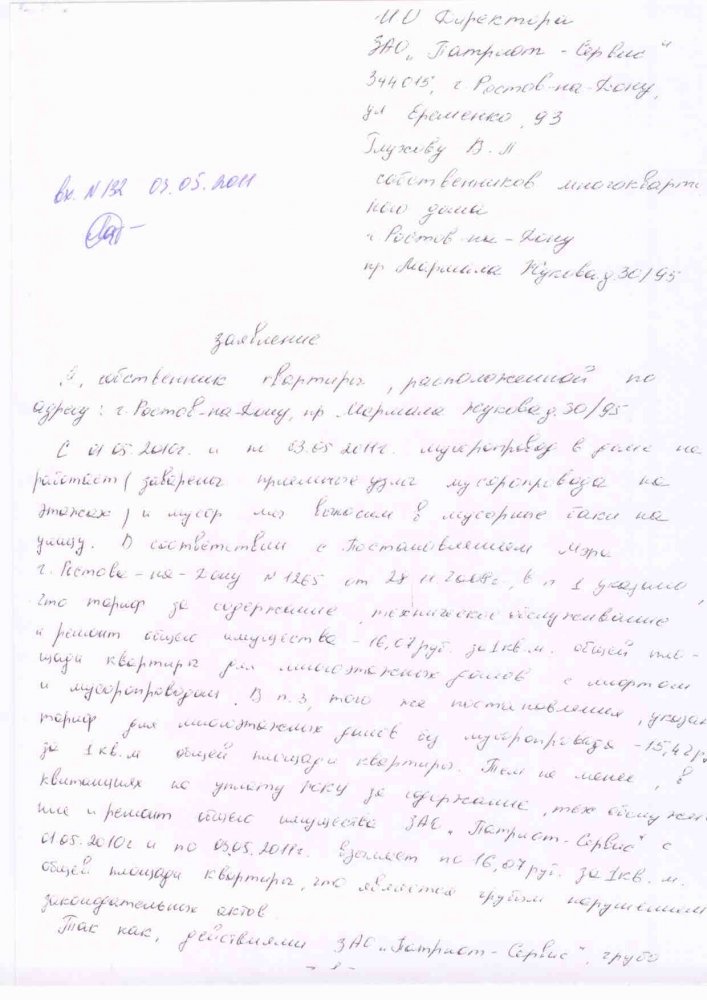 ИО Директора
ЗАО „Патриот - Сервис"
344015, г. Ростов-на-Дону,
ул Еременко, 93
Глухову В.П
собственников многокварти
ного дома
г. Ростов-на-Дону
пр Маршала Жукова д. 30/95
вх. N 132 03.05.2011
заявление
Я, собственник квартиры, расположенной по
адресу: г. Ростов-на-Дону, пр. Маршала Жукова д. 30/95
С 01 05. 2010г. и по 03.05 2011г. мусоропровод в доме не
работает (заварены приемные узлы мусоропровода на
этажах) и мусор мы выносим в мусорные баки на
улицу. В соответствии с Постановлением Мэра
г. Ростова-на-Дону N 1265 от 28 11 2008г., в п 1 указано,
что тариф за содержание, техническое обслуживание
и ремонт общего имущества - 16,07 руб. за 1 кв. м. общей пло-
щади квартиры для многоэтажных домов с лифтом
и мусоропроводом. В п. 3, того же постановления, указан
тариф для многоэтажных домов без мусоропровода - 15,42 ру
за 1 кв. м общей площади квартиры. Тем не менее, в
квитанциях на уплату ЖКУ за содержание, тех обслужив
ние и ремонт общего имущества ЗАО „Патриот-Сервис" с
01.05.2010г и по 03.05.2011г. взимает по 16,07 руб. за 1 кв. м.
общей площади квартиры, что является грубым нарушением
законодательных актов.
Так как, действиями ЗАО „Патриот-Сервис", грубо
- 1 -